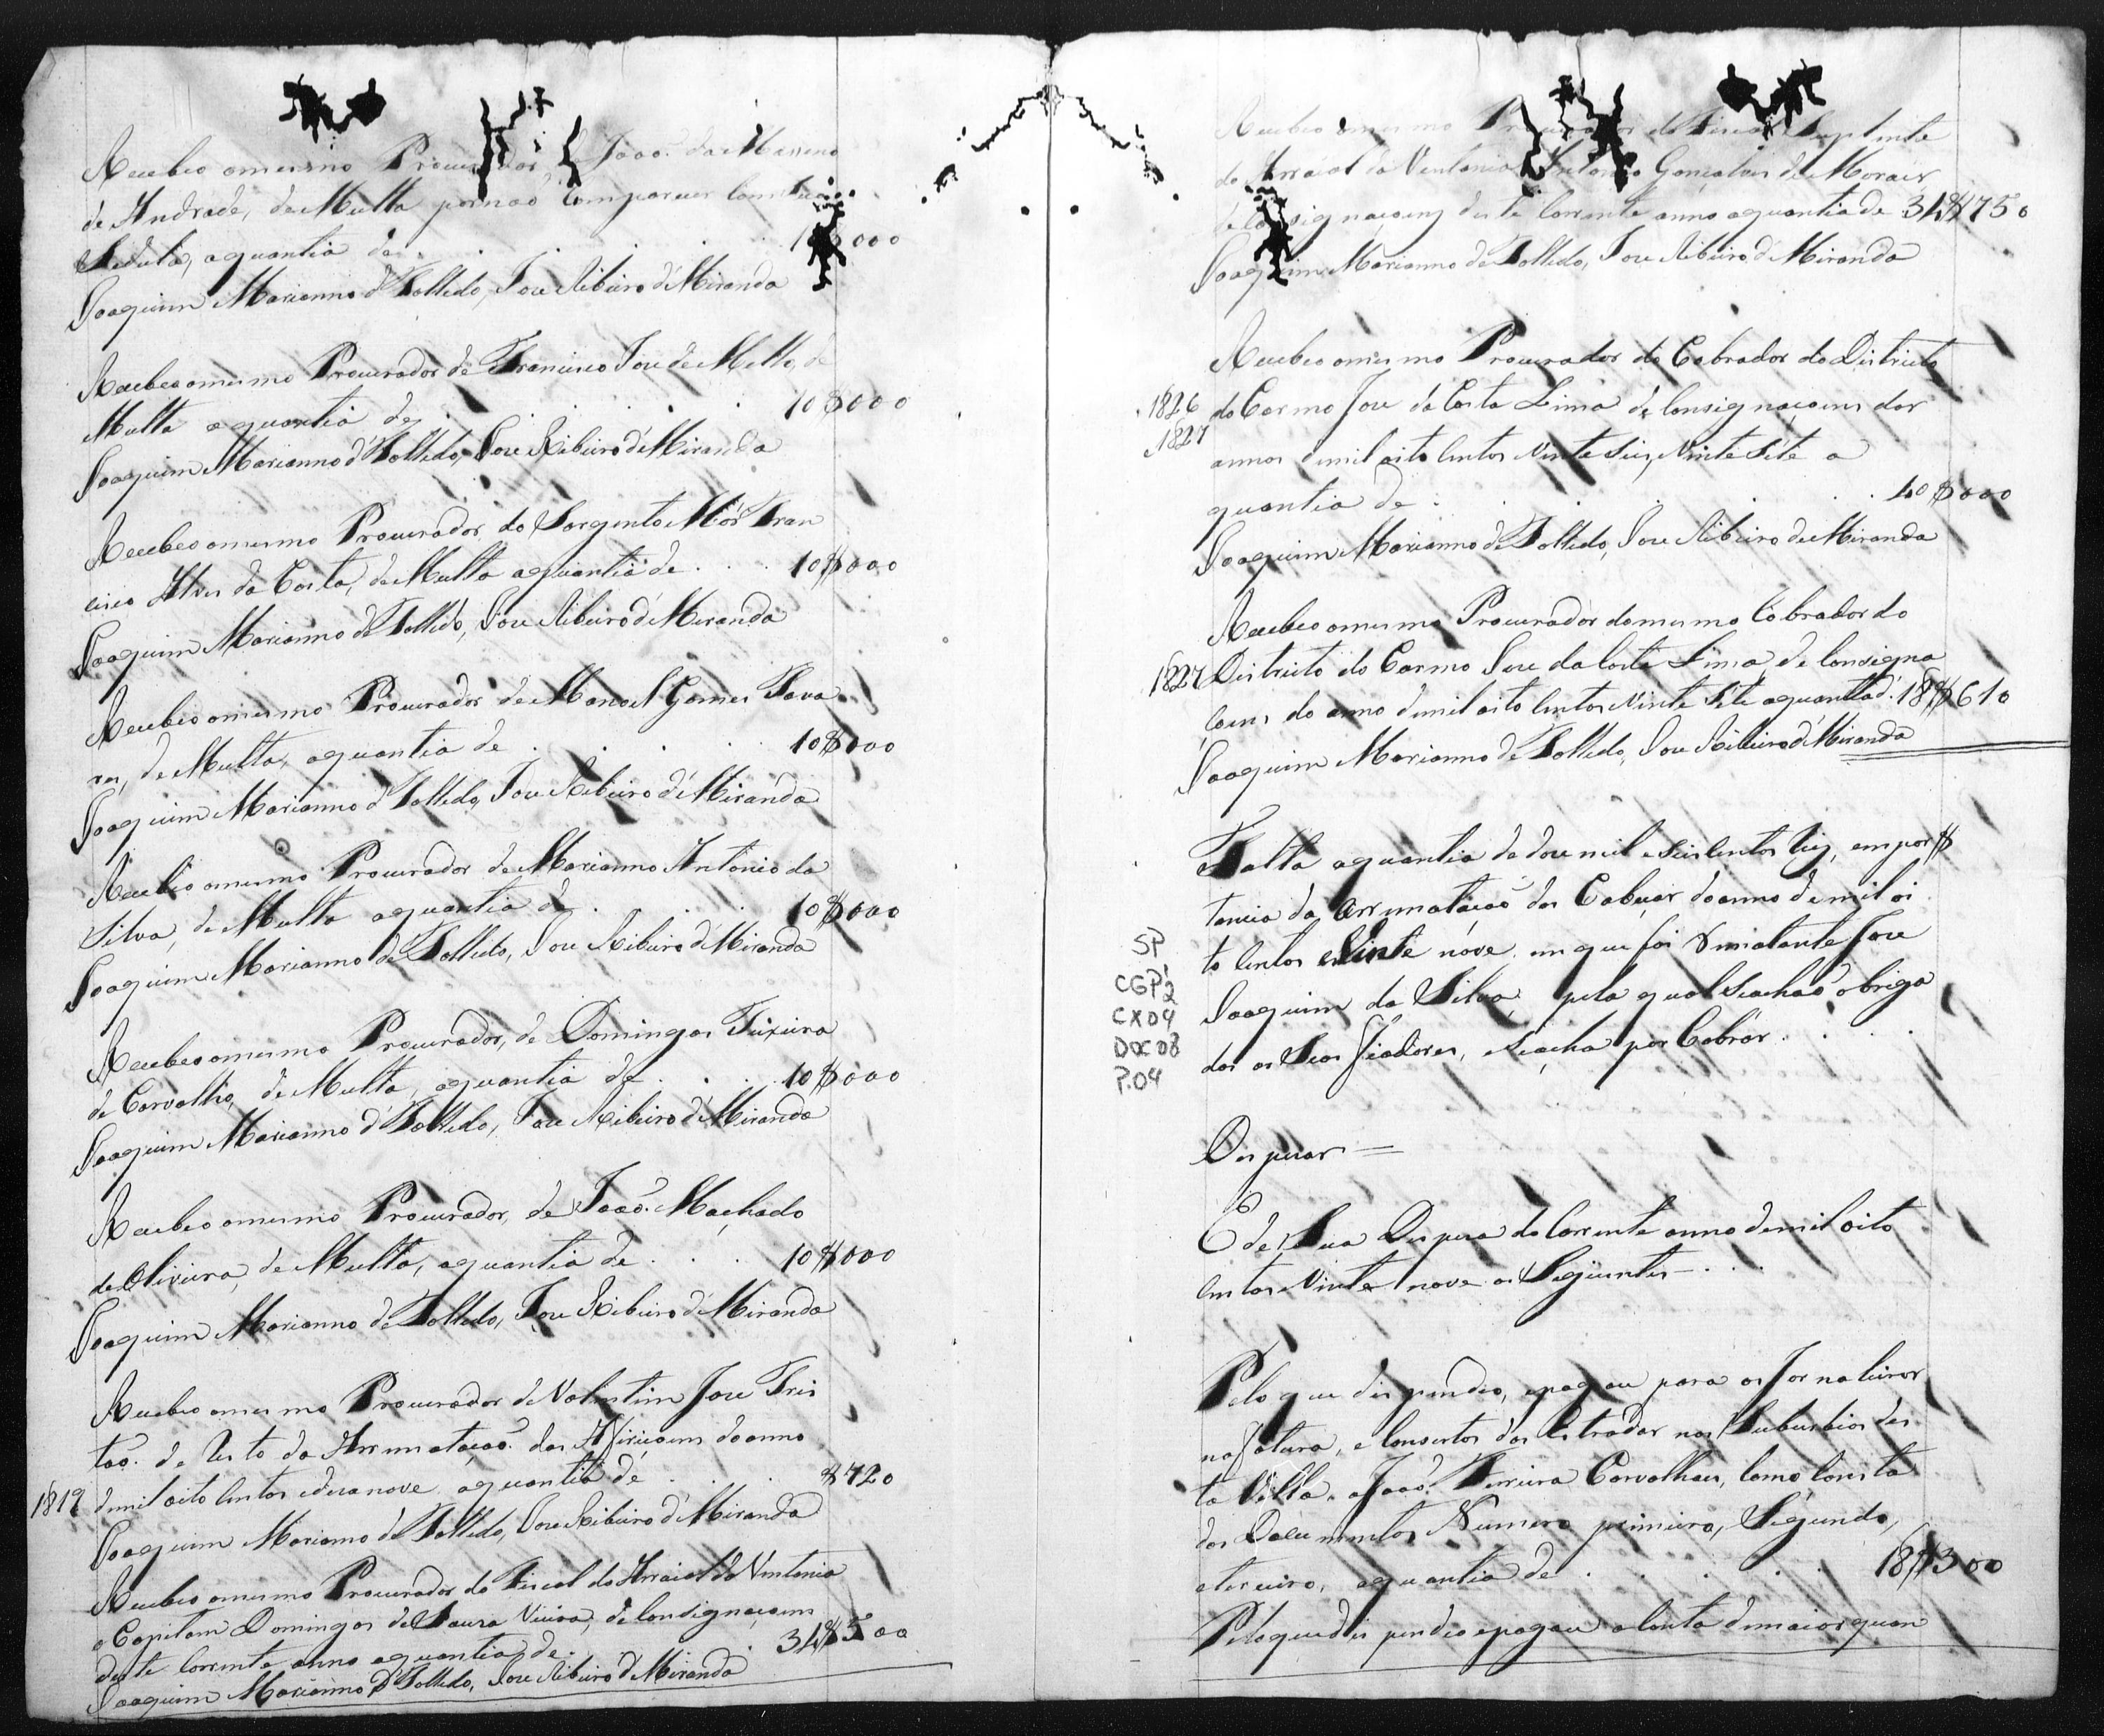 Recebeo omesmo Procurador de Joaõ da
de Andrade, de Multa por naõ Comparecer Com Sua
Sedula, aquantia de . . . 10$000
Joaquim Marianno d'Tolledo, Joze Ribeiro d'Miranda
Recebeo omesmo Procurador de Francisco Joze de Mello, de
Multa aquantia de . . . 10$000
Joaquim Marianno d'Tolledo, Joze Ribeiro d'Miranda
Recebeo omesmo Procurador do Sargento Mór Fran
cisco Alves da Costa, de Multa aquantia de . . . 10$000
Joaquim Marianno de Tolledo, Joze Ribeiro d'Miranda
Recebeo omesmo Procurador de Manoel Gomes Tava
res, de Multa, aquantia de . . . . 10$000
Joaquim Marianno d'Tolledo, Joze Ribeiro d'Miranda
Recebeo omesmo Procurador de Marianno Antonio da
Silva, de Multa aquantia de . . . 10$000
Joaquim Marianno de Tolledo, Joze Ribeiro d'Miranda
Recebeo omesmo Procurador, de Domingos Teixeira
de Carvalho, de Multa, aquantia de . . . 10$000
Joaquim Marianno d'Tolledo, Joze Ribeiro d'Miranda
Recebeo omesmo Procurador, de Joaõ Machado
de Oliveira, de Multa, aquantia de . . . 10$000
Joaquim Marianno de Tolledo, Joze Ribeiro d'Miranda
Recebeo omesmo Procurador de Valentim Joze Fris
taõ de Resto da Arrematacaõ das Afiricoens do anno
1819 demil oito Centos e deza nove aquantia de . . . $720
Joaquim Marianno de Tolledo, Joze Ribeiro d'Miranda
Recebeo omesmo Procurador do Fiscal do Arraial da Ventania
o Capitam Domingos de Souza Vieira, de Consignaçoens
deste Corrente anno aquantia de . 34$500
Joaquim Marianno d'Tolledo, Joze Ribeiro d'Miranda
Recebeo omesmo Procurador do Fiscal Suplente
do Arraial da Ventania Antonio Gonçalves de Moraes
de Consignaçoens deste Corrente anno aquantia de 34$750
Joaquim Marianno de Tolledo, Joze Ribeiro d'Miranda
Recebeo omesmo Procurador do Cobrador do Districto
1826 do Carmo Joze da Costa Lima de Consignaçoens dos
1827
annos demil oito Centos Vinte Seis, Vinte Sete a
quantia de . . . . 40$000
Joaquim Marianno de Tolledo, Joze Ribeiro de Miranda
Recebeo omesmo Procurador domesmo Cobrador do
1827 Districto do Carmo Joze da Costa Lima, de Consigna
coens do anno demil oito Centos Vinte Sete aquantia d. 18$610
Joaquim Marianno de Tolledo, Joze Ribeiro d'Miranda
Falta aquantia de doze mil e Seis Centos Reis, empor $
tancia da Arrematacaõ das Cabeças do anno demil oi
to Centos e Vinte nove, em que foi Rematante Joze
Joaquim da Silva, pela qual Seachaõ obriga
dos os Seos Fiadores, eSeacha por Cobrar . . .
SP
CGP2
CX04
DOC08
P.04
Despezas =
E de Sua Despeza do Corrente anno demil oito
Centos Vinte nove os Seguintes . . .
Pelo que dispendeo, epagou para os Jornaleiros
na fatura, e Consertos das Estradas nos Suburbios des
ta Villa, a Joaõ Ferreira Carvalhaes, Como Consta
dos Documentos Numero primeiro, Segundo,
eterceiro, aquantia de . . . . 18$300
Pelo que dispendeo epagou a Conta demaior quan